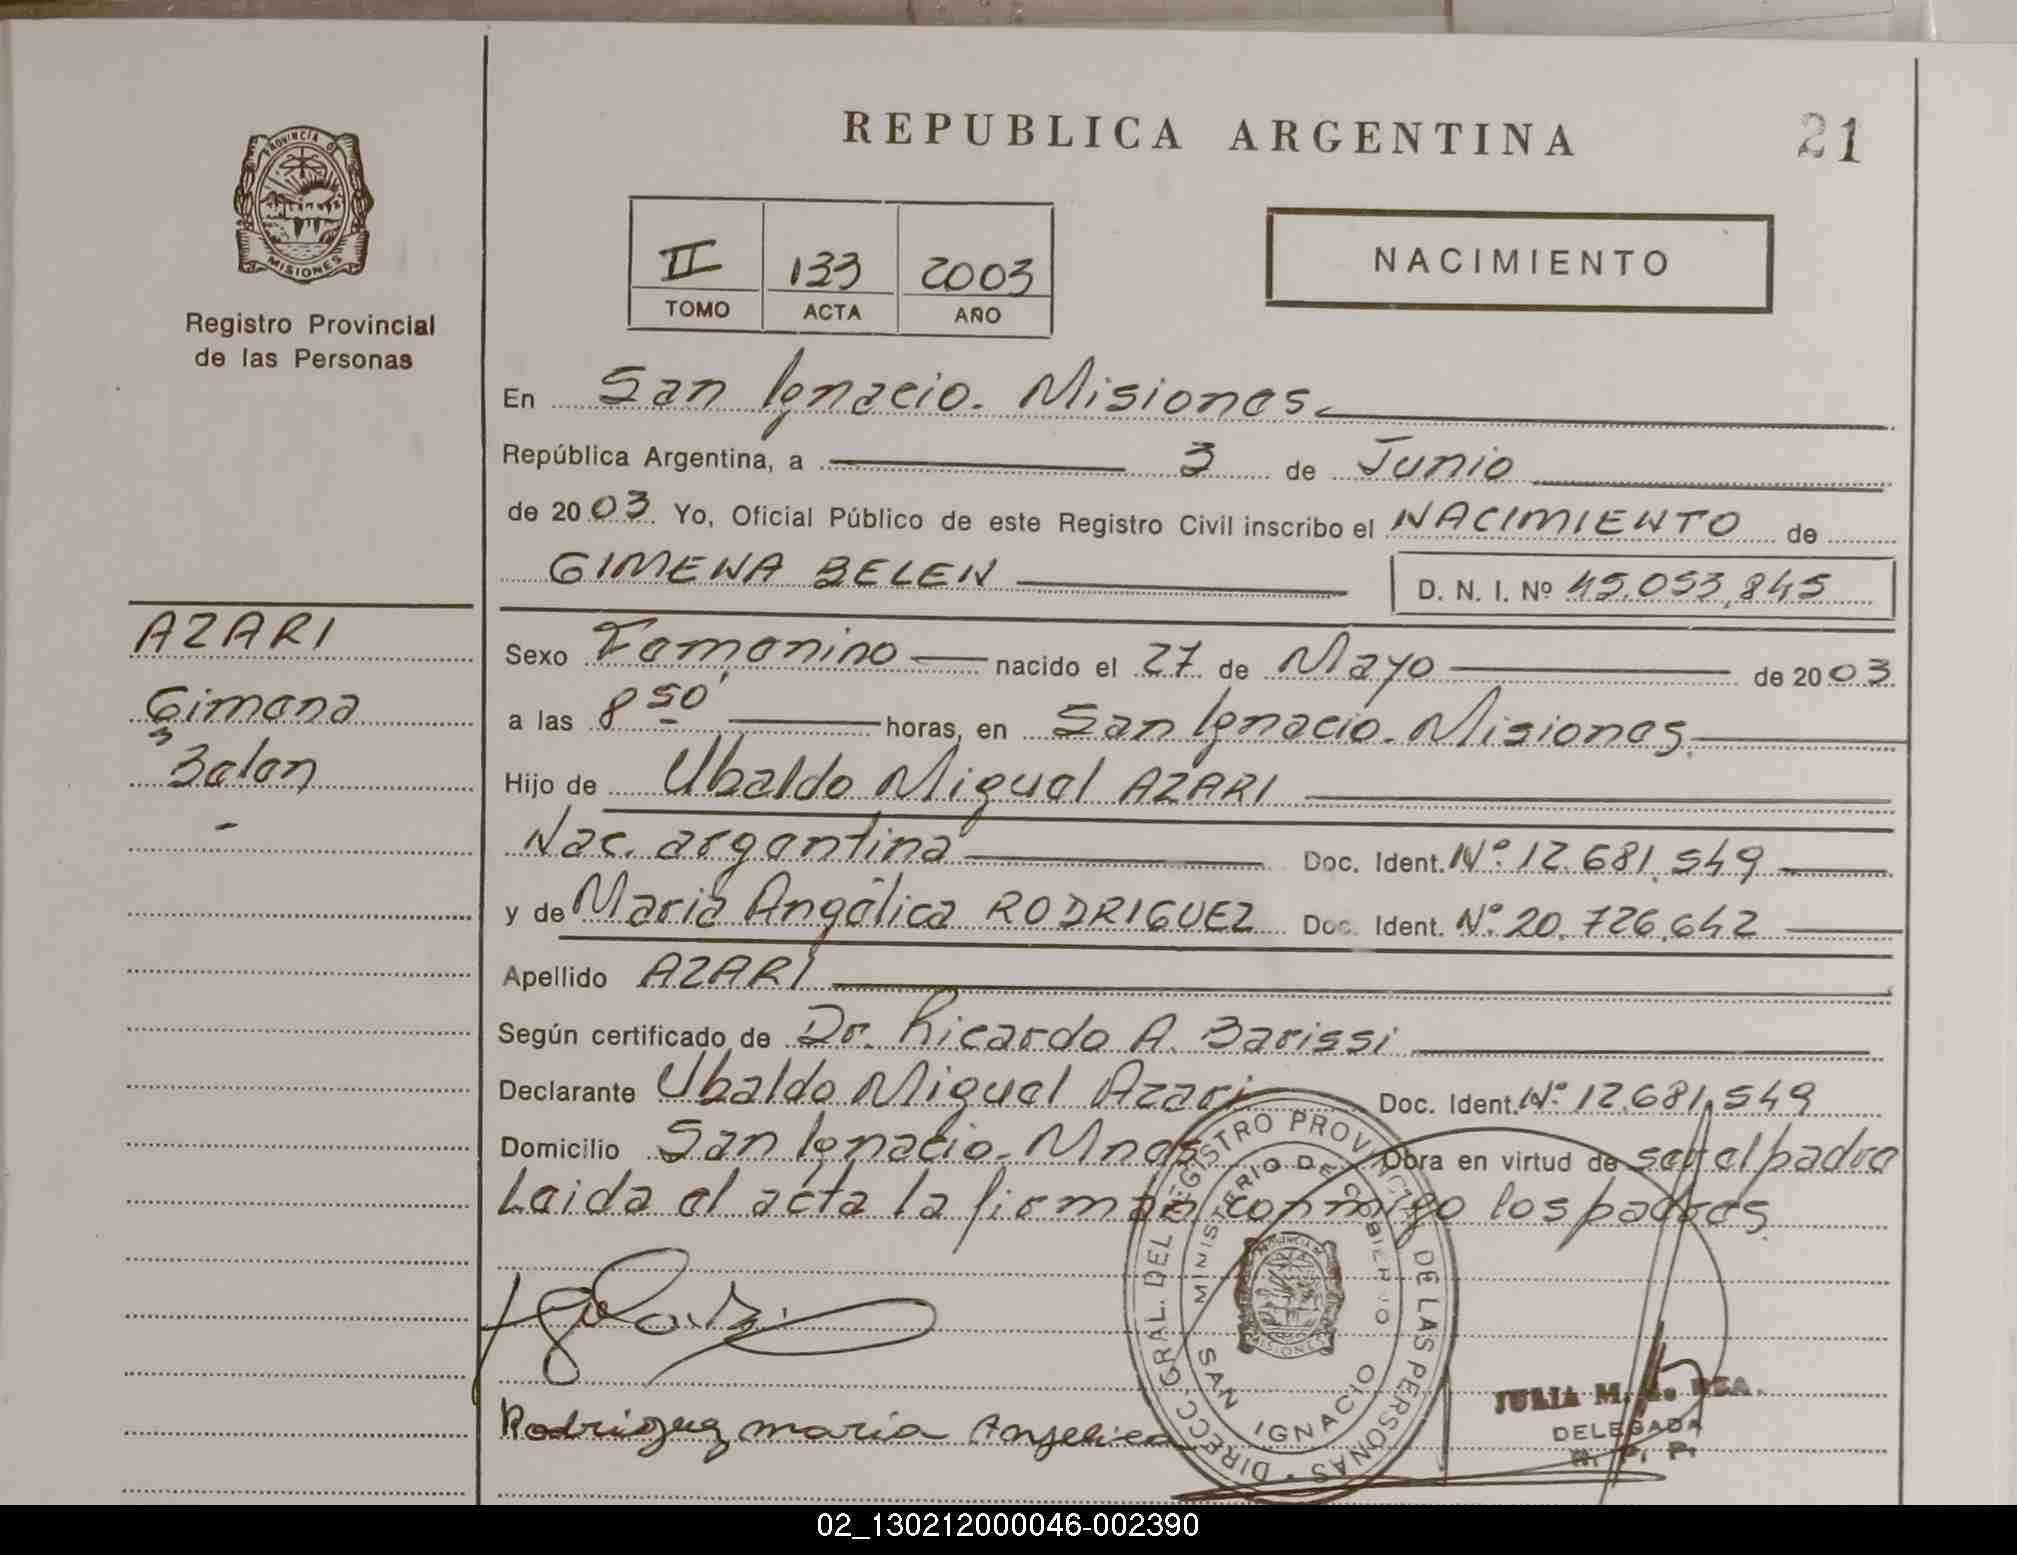 REPUBLICA ARGENTINA
21
PROVINCIA D
MISIONES
Registro Provincial
de las Personas
II 133 2003
TOMO ACTA AÑO
NACIMIENTO
En San Ignacio. Misiones
República Argentina, a 3 de Junio
de 2003 Yo, Oficial Público de este Registro Civil inscribo el NACIMIENTO de
GIMENA BELEN D. N. I. Nº 45.053,845
AZARI
Gimena
Belen
Sexo Femenino nacido el 27 de Mayo de 2003
a las 8 50' horas, en San Ignacio. Misiones.
Hijo de Ubaldo Miguel AZARI
Nac. argentina Doc. Ident. Nº 12.681,549
y de María Angélica RODRIGUEZ Doc. Ident. Nº 20.726,642
Apellido AZARI
Según certificado de Dr. Ricardo A. Barissi
Declarante Ubaldo Miguel Azari Doc. Ident. Nº 12.681,549
Domicilio San Ignacio. Mnes Obra en virtud de ser el padre
Leida el acta la firman conmigo los padres.
Rodriguez maria Angelica
DIRECC. GRAL. DEL REGISTRO PROVINCIAL DE LAS PERSONAS
MINISTERIO DE GOBIERNO
SAN IGNACIO
MISIONES
JULIA M.
DELEGADA
R. P. P.
02_130212000046-002390